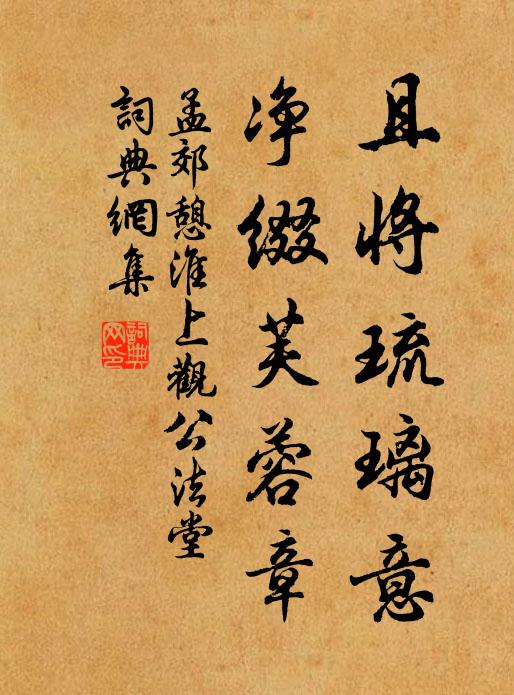 且将琉璃意
净缀芙蓉章
孟郊憩淮上觀公法堂
詞典網集
詞典
网印